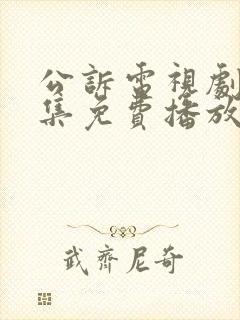 公訴電視劇
集免費播放
武齊尼奇